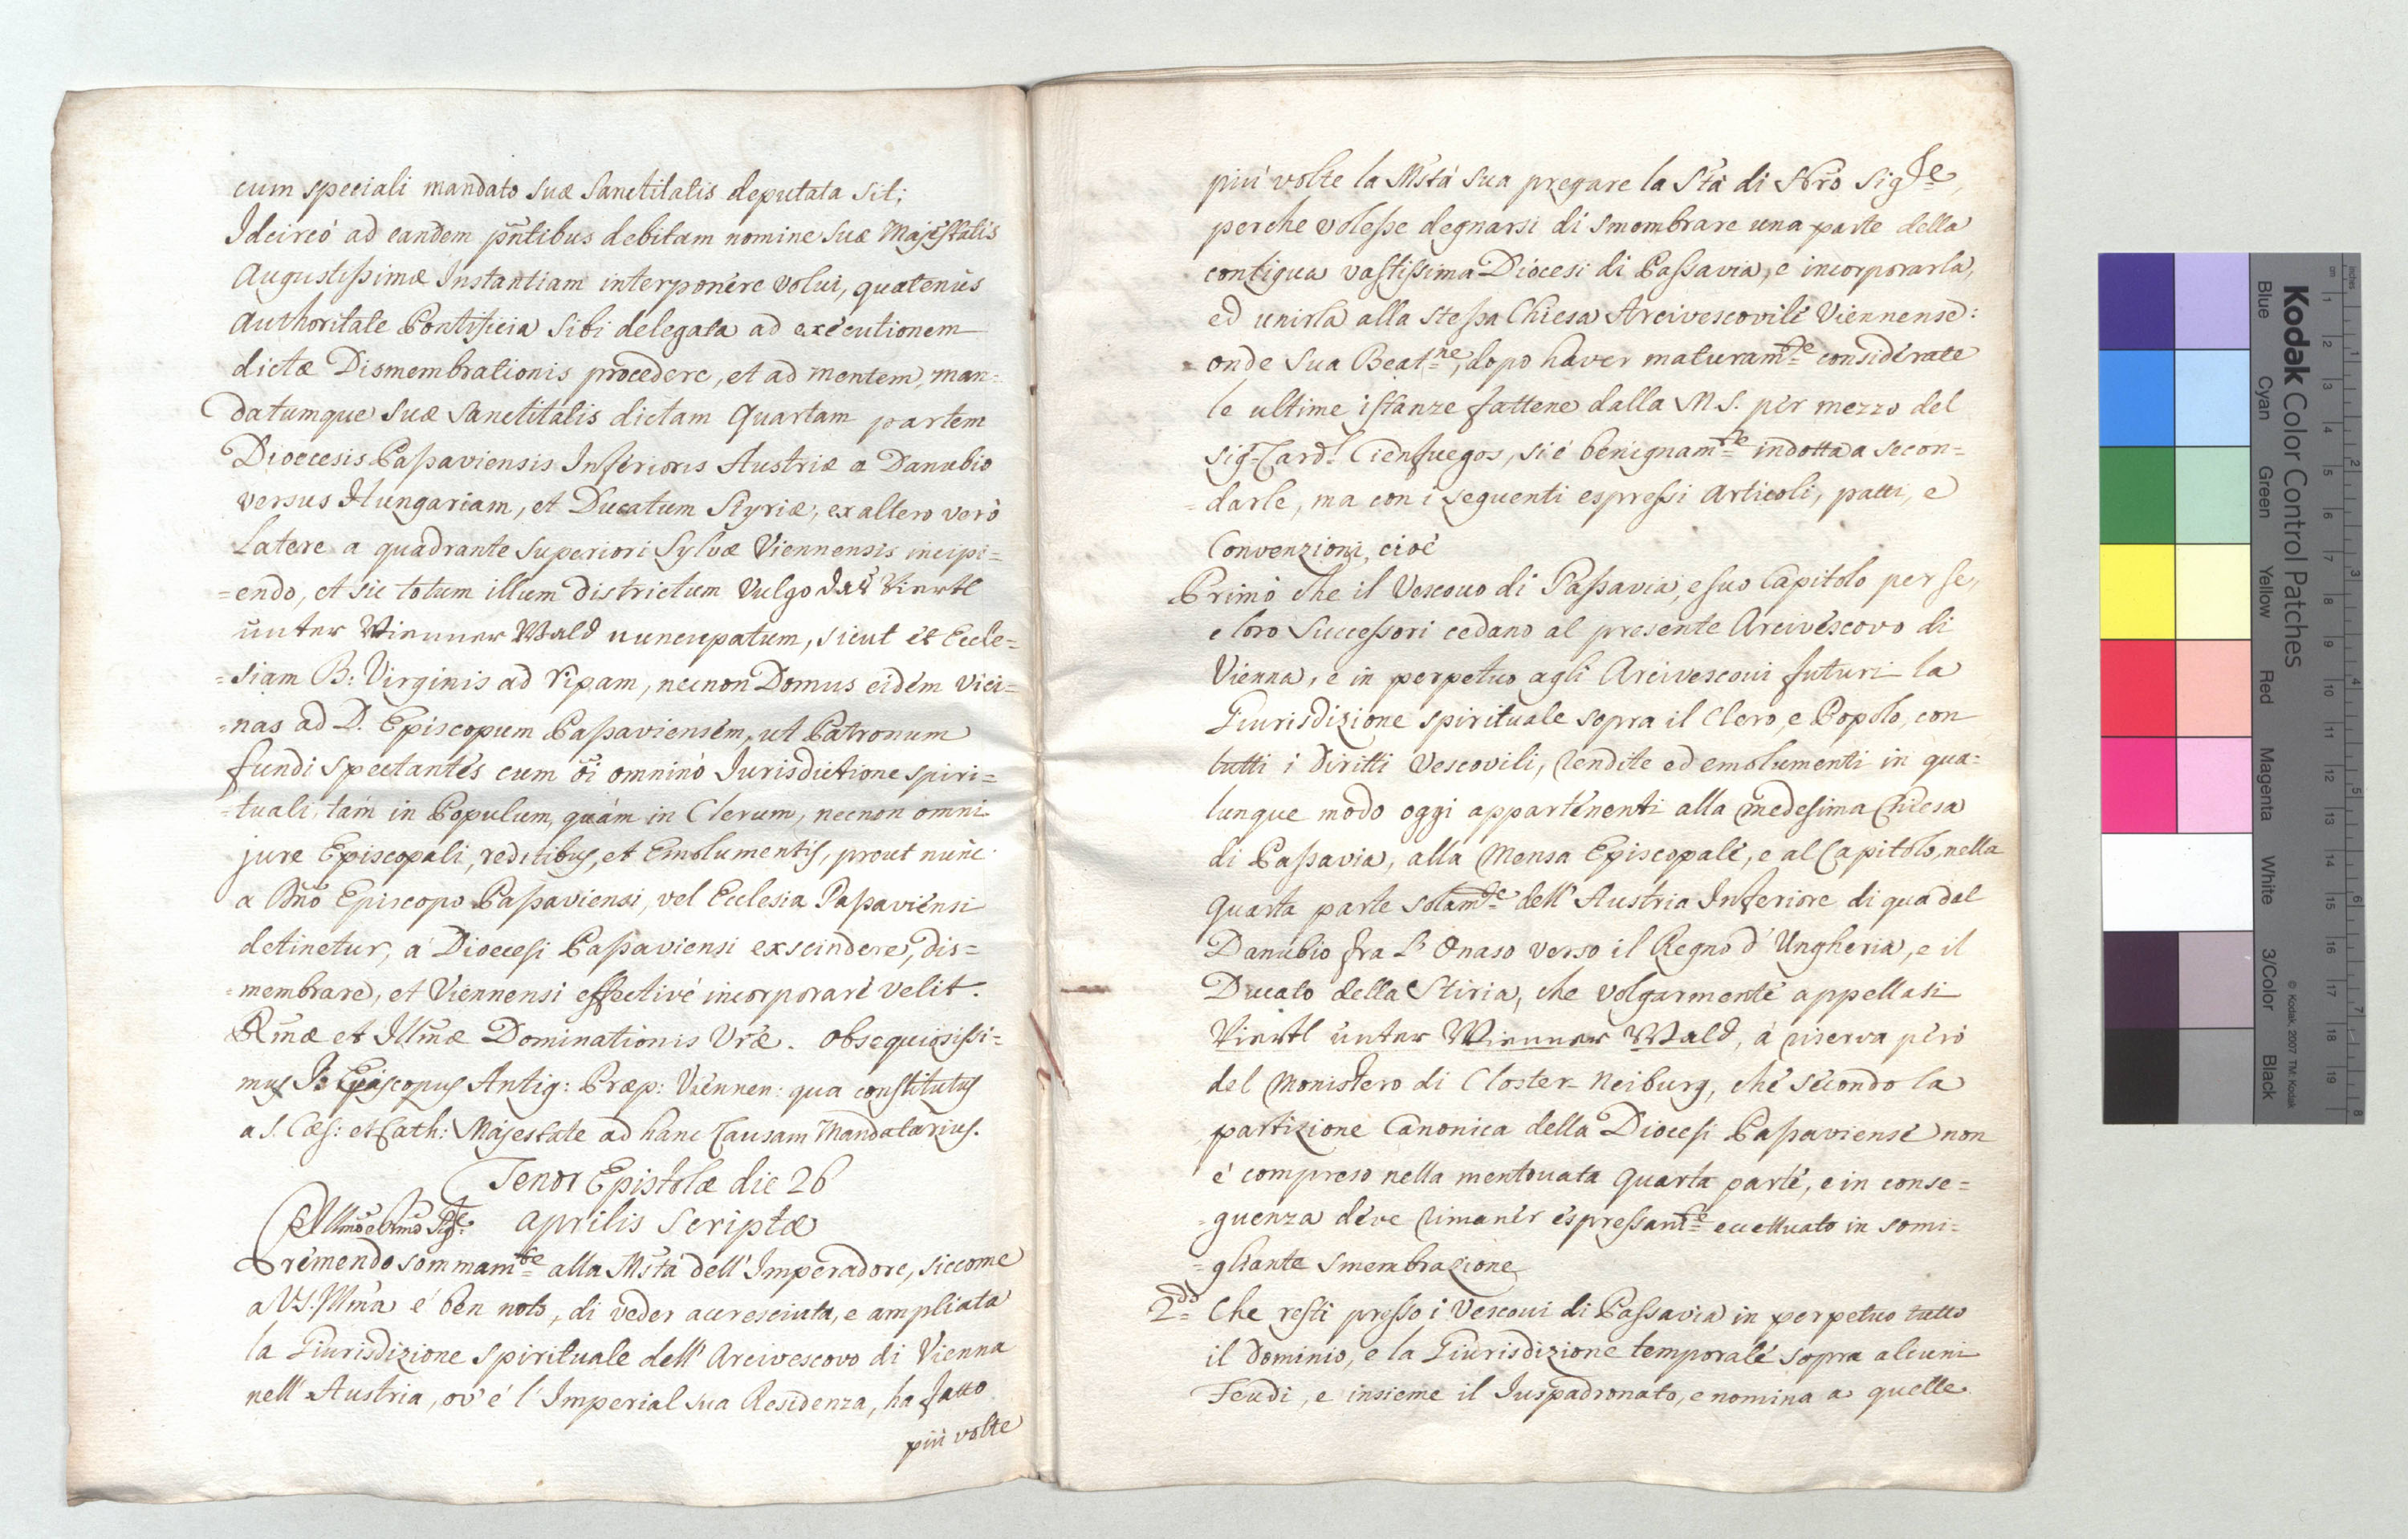 cum speciali mandato suæ Sanctitatis deputata sit;
Idcircò ad eandem pñtibus debitam nomine suæ Majestatis
Augustissimæ Instantiam interponere volui, quatenùs
Authoritate Pontificia sibi delegata ad executionem
dictæ Dismembrationis procedere, et ad mentem, man=
datumque suæ Sanctitatis dictam quartam partem
Diœcesis Passaviensis Inferioris Austriæ a Danubio
versus Hungariam, et Ducatum Styriæ, ex altero verò
Latere a quadrante superiori Sylvæ Viennensis incipi=
=endo, et sic totum illum districtum vulgo das Viertl
unter Wienner Wald nuncupatum, sicut et Eccle=
=siam B: Virginis ad ripam, necnon Domus eidem vici=
=nas ad D. Episcopum Passaviensem, ut Patronum
fundi spectantes cum oi omninò Iurisdictione spiri=
=tuali, tàm in Populum, quàm in Clerum, necnon omni
jure Episcopali, reditibus, et Emolumentis, prout nunc
a Dño Episcopo Passaviensi, vel Ecclesia Passaviensi
detinetur, à Diœcesi Passaviensi exscindere, dis=
=membrare, et Viennensi effectivè incorporare velit.
Rmæ et Illmæ Dominationis Vræ. Obsequiosissi=
mus Episcopus Antig: Præp: Viennen: qua constitutus
a S. Cæs: et Cath: Majestate ad hanc Causam Mandatarius.
Tenor Epistolæ die 26
Illmo e Rmo Sigre Aprilis scriptæ
Premendo sommamte alla Mstà dell' Imperadore, siccome
a VS. Illma è ben noto, di veder accresciuta, e ampliata
la Giurisdizione spirituale dell' Arcivescovo di Vienna
nell' Austria, ov' è l' Imperial sua Residenza, ha fatto
più volte
più volte la Mstà sua pregare la Stà di Nro Sigre,
perche volesse degnarsi di smembrare una parte della
contigua vastissima Diocesi di Passavia, e incorporarla,
ed unirla alla stessa Chiesa Arcivescovile Viennense:
onde sua Beatne, dopo haver maturamte considerate
le ultime istanze fattene dalla M S. per mezzo del
Sig= Card. Cienfuegos, si è benignamte indotta a secon=
=darle, ma con i seguenti espressi articoli, patti, e
Convenzioni, cioè
Primò che il Vescovo di Passavia, e suo Capitolo per se,
e loro Successori cedano al presente Arcivescovo di
Vienna, e in perpetuo agli Arcivescovi futuri la
Giurisdizione spirituale sopra il Clero, e Popolo, con
tutti i diritti Vescovili, rendite ed emolumenti in qua=
lunque modo oggi appartenenti alla medesima Chiesa
di Passavia, alla Mensa Episcopale, e al Capitolo, nella
quarta parte solamte dell' Austria Inferiore di qua dal
Danubio fra l' Onaso verso il Regno d' Ungheria, e il
Ducato della Stiria, che volgarmente appellasi
Viertl unter Wienner Wald, à riserva però
del Monistero di Closter-Neiburg, che secondo la
partizione Canonica della Diocesi Passaviense non
è compreso nella mentovata quarta parte, e in conse=
=guenza deve rimaner espressamte eccettuato in somi=
=gliante smembrazione
2do= Che resti presso i Vescovi di Passavia in perpetuo tutto
il dominio, e la Giurisdizione temporale sopra alcuni
Feudi, e insieme il Iuspadronato, e nomina a quelle
Kodak Color Control Patches
© Kodak, 2007 TM: Kodak
Blue Cyan Green Yellow Red Magenta White 3/Color Black
cm 1 2 3 4 5 6 7 8 9 10 11 12 13 14 15 16 17 18 19
inches 1 2 3 4 5 6 7 8